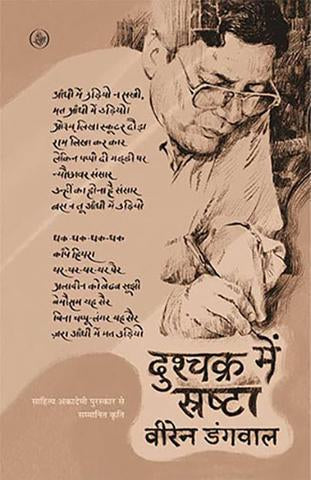 आँधी में उड़ियो न सखी,
मत आँधी में उड़ियो।
ओ३म् लिखा स्कूटर दौड़ा
राम लिखा कर कार
लेकिन पप्पी दी गड्डी पर
न्यौछावर संसार
उन्हीं का होना है संसार
बस न तू आँधी में उड़ियो
धक-धक-धक-धक
काँपे हियरा
थर-थर-थर-थर पैर
अलादीन को बेढब सूझी
बेमौसम यह सैर
बिना पप्पू-लंगर यह सैर
ज़रा आँधी में मत उड़ियो
दुश्चक्र में
स्रष्टा
साहित्य अकादेमी पुरस्कार से
सम्मानित कृति
वीरेन डंगवाल